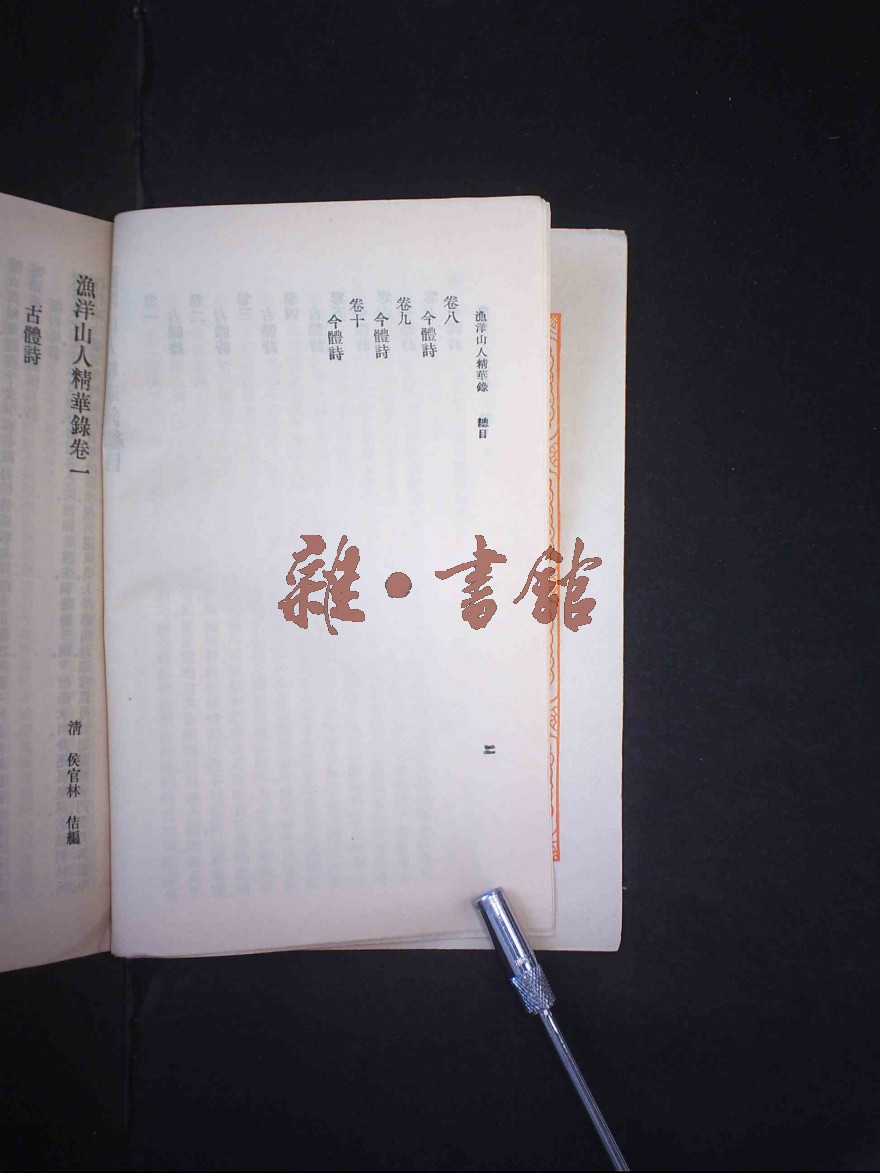 漁洋山人精華錄 總目
二
卷八
今體詩
卷九
今體詩
卷十
今體詩
漁洋山人精華錄卷一
清 侯官林 佶編
古體詩
雜·書館